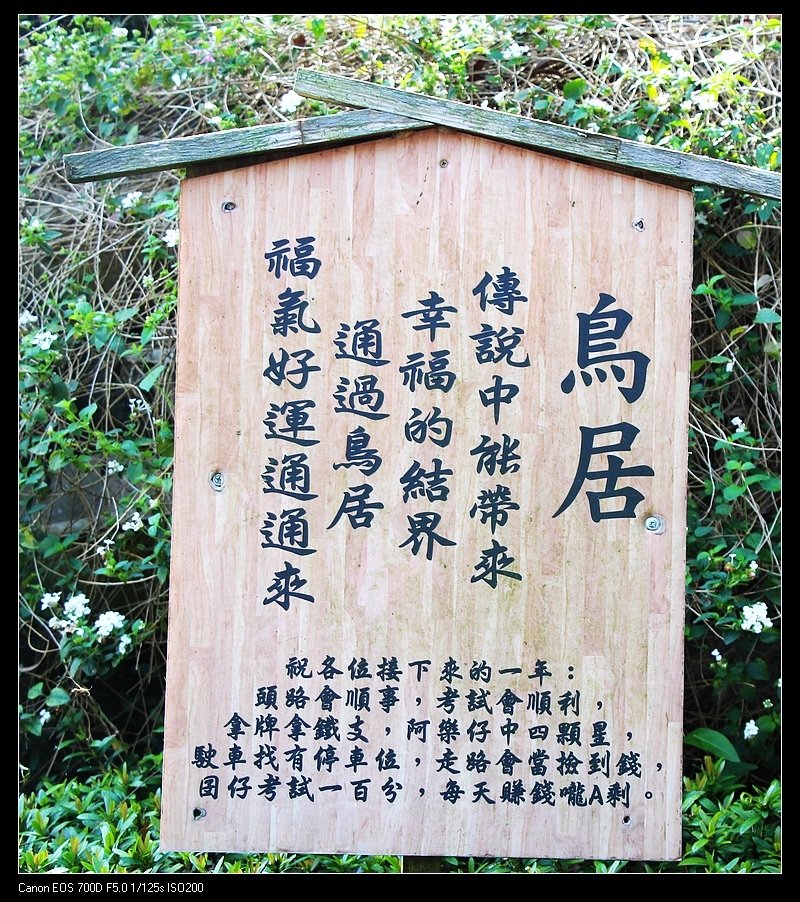 鳥居
傳說中能帶來
幸福的結界
通過鳥居
福氣好運通通來
祝各位接下來的一年：
頭路會順事，考試會順利，
拿牌拿鐵支，阿樂仔中四顆星，
駛車找有停車位，走路會當撿到錢，
囝仔考試一百分，每天賺錢嚨A剩。
Canon EOS 700D F5.0 1/125s ISO200